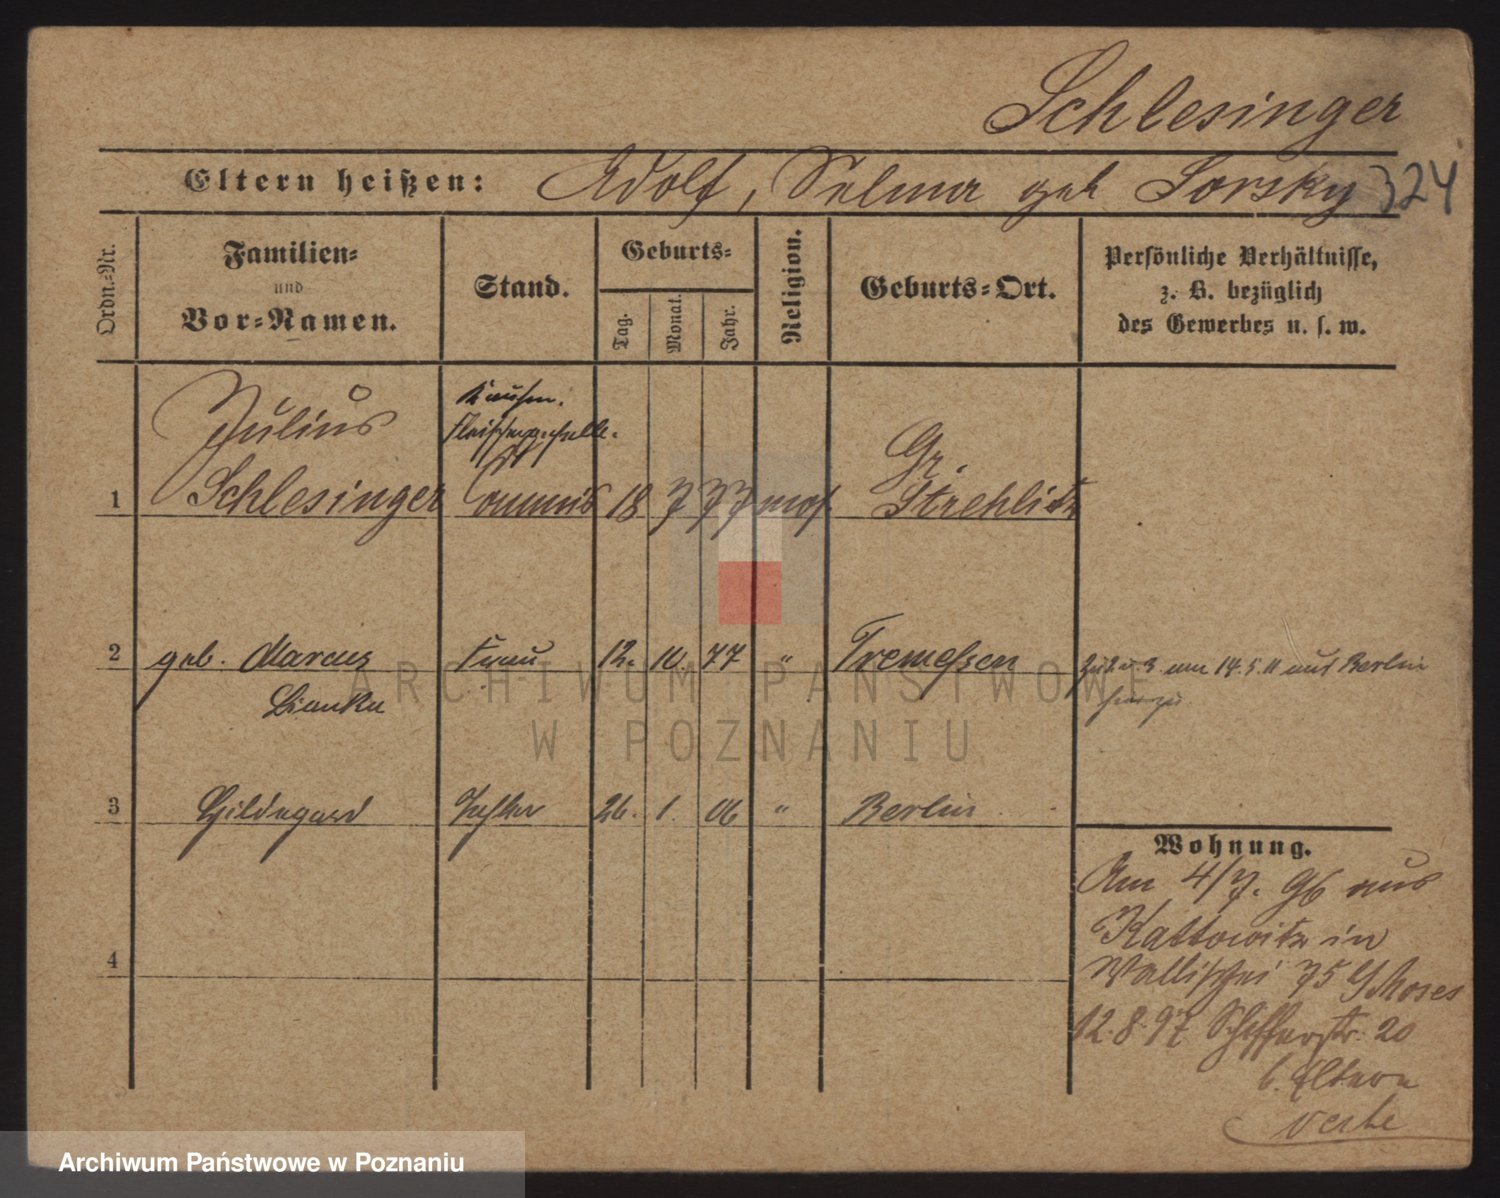 Schlesinger
Eltern heißen: Adolf, Selma geb Sorsky 324
Ordn.-Nr.
Familien-
und
Vor-Namen.
Stand.
Geburts-
Tag.
Monat.
Jahr.
Religion.
Geburts-Ort.
Persönliche Verhältnisse,
z. B. bezüglich
des Gewerbes u. s. w.
Kaufm.
Julius Fleischergeselle. Gr.
1 Schlesinger Commis 18 7 77 mos. Strehlitz
2 geb. Marcus Frau 12. 10. 77 " Tremessen zu 2 u 3. am 14.5.11 aus Berlin
Bianka
3 Hildegard Tochter 26. 1. 06 " Berlin
Wohnung.
Am 4/7. 96 aus
Kattowitz in
4
Wallischei 75 Moses
12.8.97 Schifferstr. 20
b. Eltern
ARCHIWUM PAŃSTWOWE
W POZNANIU
Archiwum Państwowe w Poznaniu